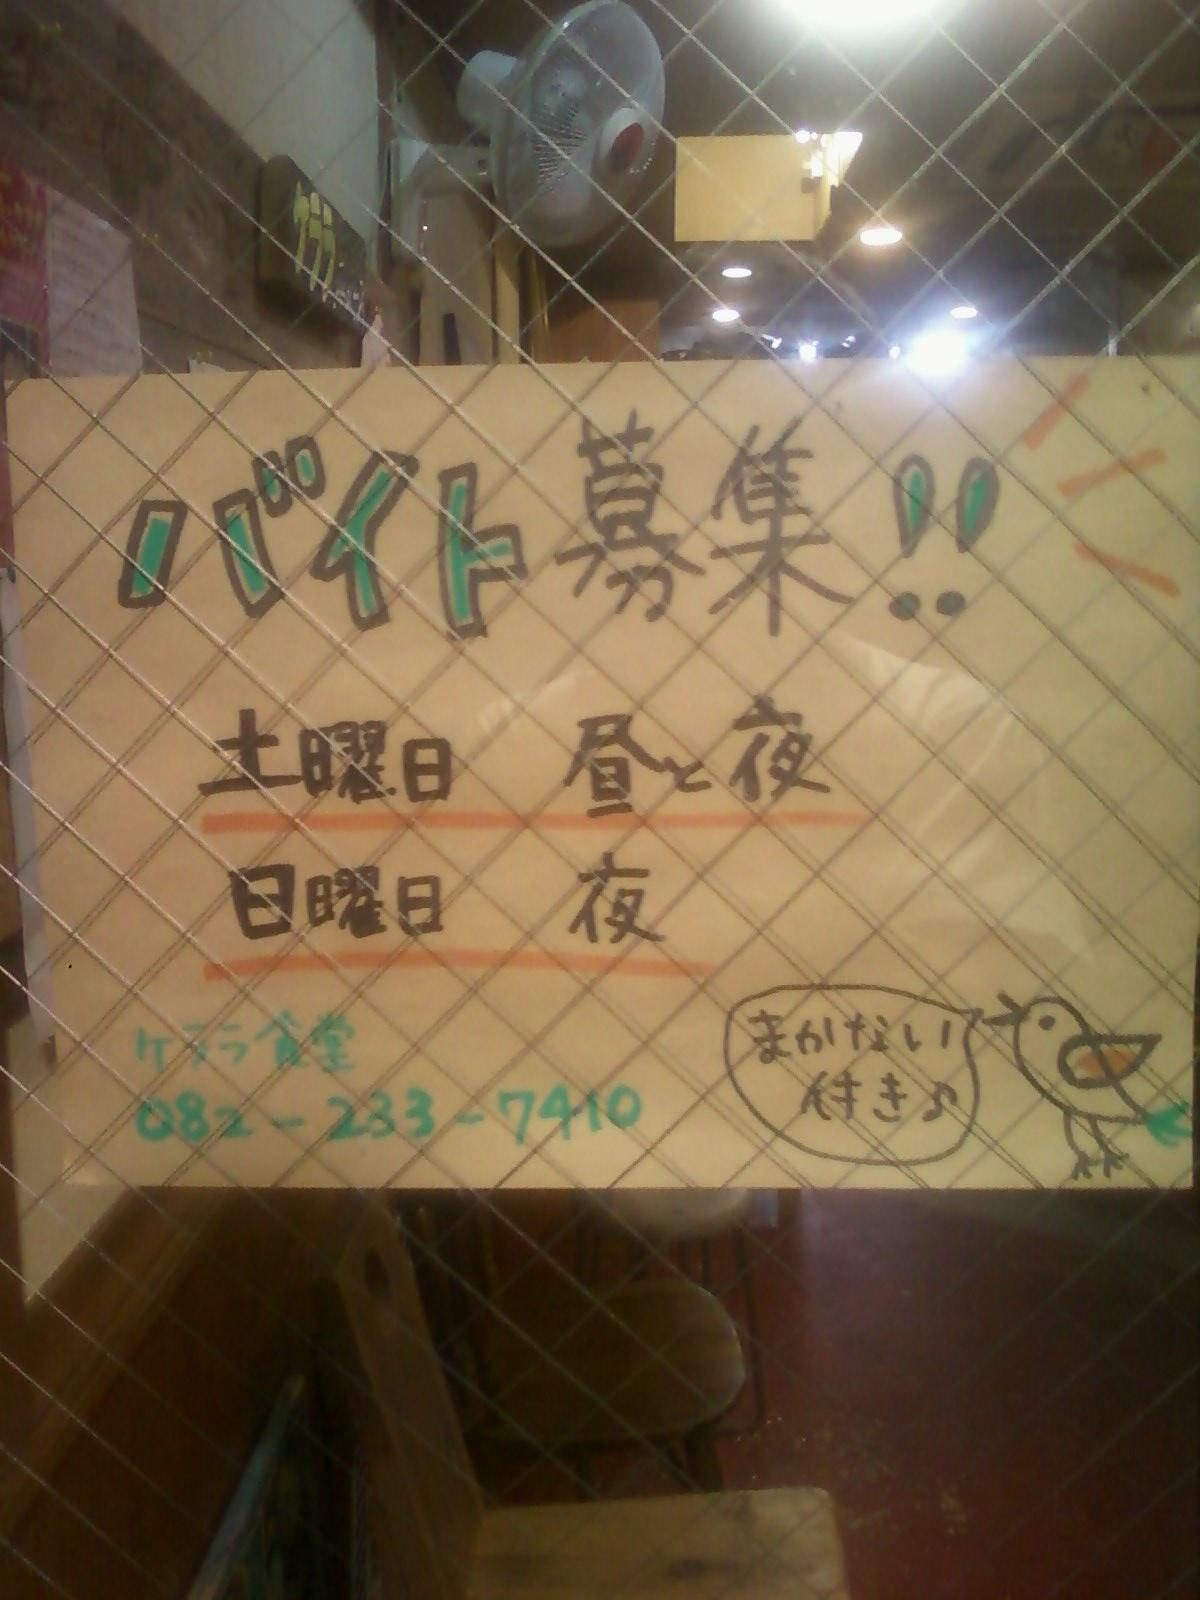 ケララ
バイト募集!!
土曜日 昼と夜
日曜日 夜
ケララ食堂
082-233-7410
まかない
付き♪